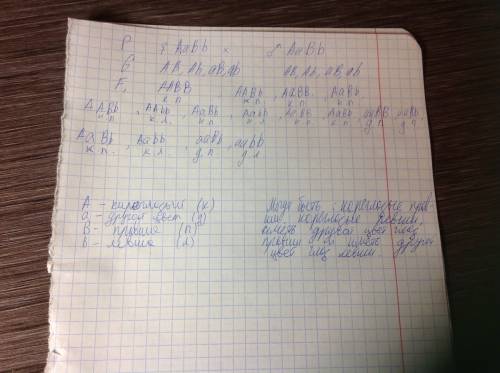 P ♀ AaBb × ♂ AaBb
G AB, Ab, aB, ab AB, Ab, aB, ab
F₁ AABB, AABb, AaBB, AaBb
к п. к п. к п. к п.
AABb, AAbb, AaBb, Aabb, AaBB, AaBb, aaBB, aaBb,
к п. к л. к п. к л. к п. к п. д. п д. п.
AaBb, Aabb, aaBb, aabb
к п. к л. д. п д. л
A - кареглазые (к) Могут быть: кареглазые
a - другой цвет (д) кареглазые левши,
B - правша (п) иметь другой цвет глаз
b - левша (л) правши и иметь другой
цвет глаз левши.